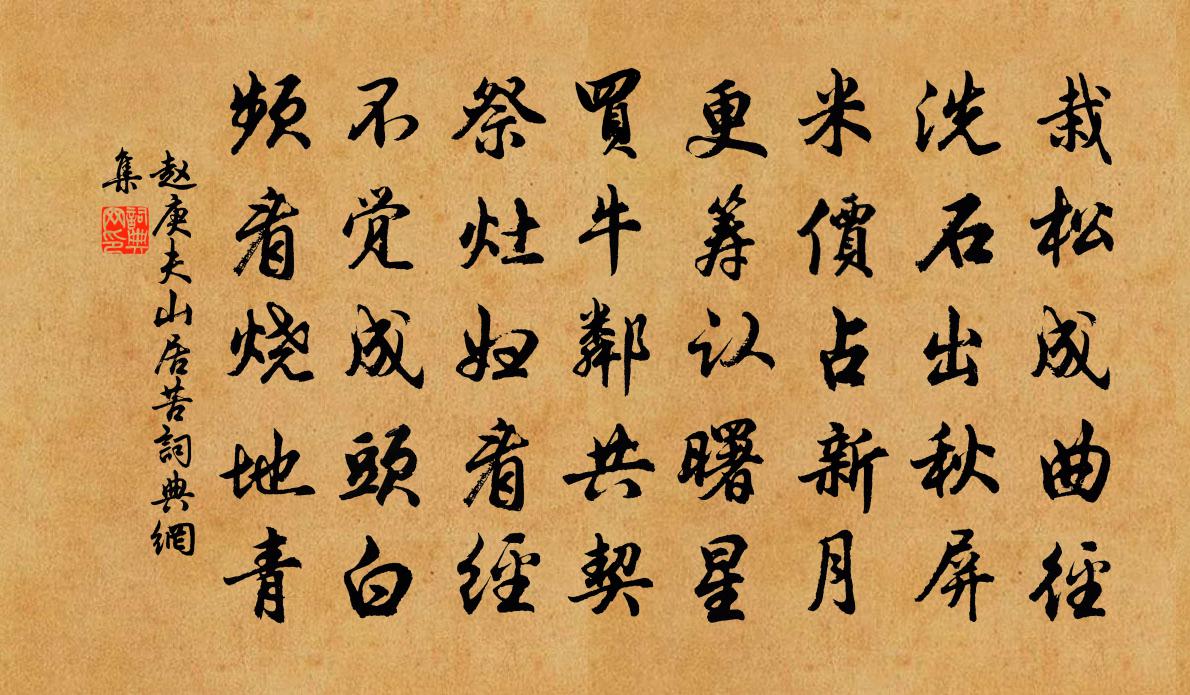 栽松成曲径
洗石出秋屏
米價占新月
更筹认曙星
買牛鄰共契
祭灶妇看經
不觉成頭白
频看烧地青
赵庚夫山居苦詞典網
集
詞典網印